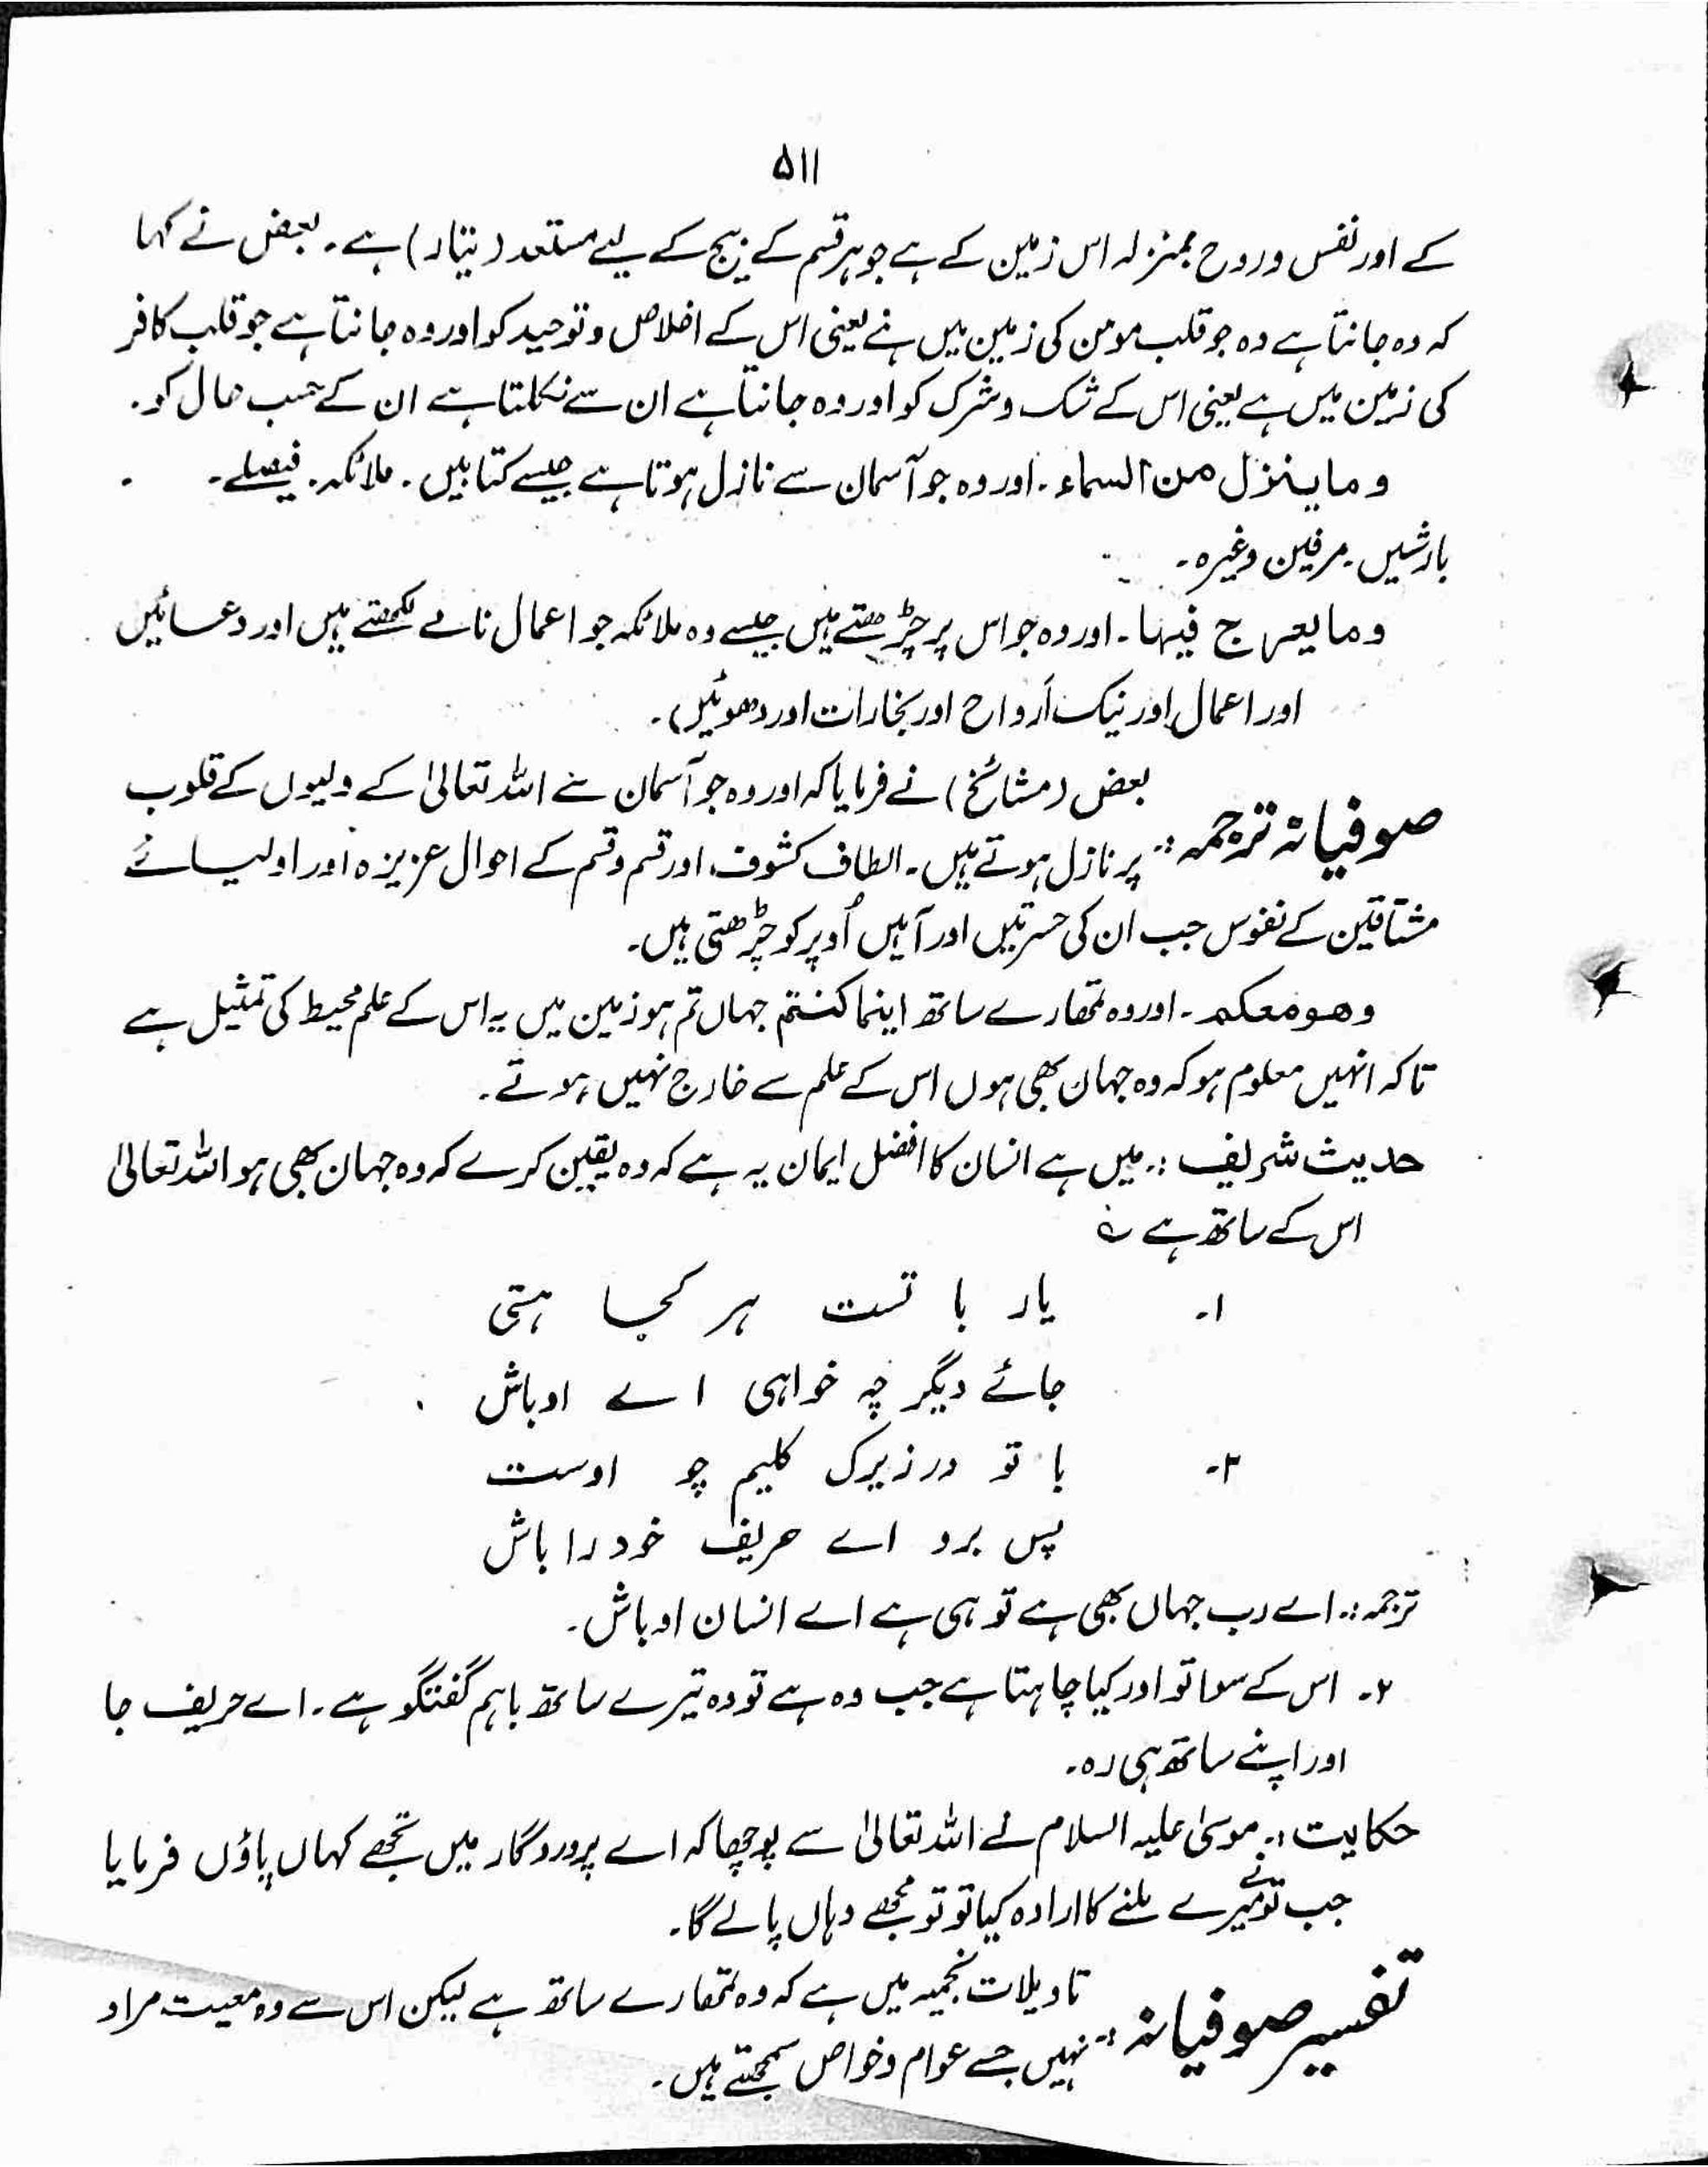 ۵۱۱
کے اور نفس و روح بمنزلہ اس زمین کے ہے جو ہر قسم کے بیج کے لیے مستعد (تیار) ہے۔ بعض نے کہا
کہ وہ جانتا ہے وہ جو قلب مومن کی زمین میں ہے یعنی اس کے اخلاص و توحید کو اور وہ جانتا ہے جو قلب کافر
کی زمین میں ہے یعنی اس کے شک و شرک کو اور وہ جانتا ہے ان سے نکلتا ہے ان کے حسب حال کو۔
وما ینزل من السماء۔ اور وہ جو آسمان سے نازل ہوتا ہے جیسے کتابیں۔ ملائکہ۔ فیصلے۔
بارشیں۔ برفیں وغیرہ۔
وما یعرج فیہا۔ اور وہ جو اس پر چڑھتے ہیں جیسے وہ ملائکہ جو اعمال نامے لکھتے ہیں اور دعائیں
اور اعمال اور نیک اَرواح اور بخارات اور دھوئیں)۔
بعض (مشائخ) نے فرمایا کہ اور وہ جو آسمان سے اللہ تعالیٰ کے ولیوں کے قلوب
صوفیانہ ترجمہ:۔ پر نازل ہوتے ہیں۔ الطاف کشوف، اور قسم و قسم کے احوال عزیزہ اور اولیائے
مشتاقین کے نفوس جب ان کی حسرتیں اور آہیں اُوپر کو چڑھتی ہیں۔
وھو معکم۔ اور وہ تمھارے ساتھ اینما کنتم جہاں تم ہو زمین میں یہ اس کے علم محیط کی تمثیل ہے
تاکہ انہیں معلوم ہو کہ وہ جہان بھی ہوں اس کے علم سے خارج نہیں ہوتے۔
حدیث شریف:۔ میں ہے انسان کا افضل ایمان یہ ہے کہ وہ یقین کرے کہ وہ جہان بھی ہو اللہ تعالیٰ
اس کے ساتھ ہے ؎
۱۔ یار با تست ہر کجا ہستی
جائے دیگر چہ خواہی اے اوباش
۲۔ با تو در زیرک کلیم چو اوست
پس برو اے حریف خود را باش
ترجمہ:۔ اے رب جہاں بھی ہے تو ہی ہے اے انسان اوباش۔
۲۔ اس کے سوا تو اور کیا چاہتا ہے جب وہ ہے تو وہ تیرے ساتھ باہم گفتگو ہے۔ اے حریف جا
اور اپنے ساتھ ہی رہ۔
حکایت:۔ موسیٰ علیہ السلام نے اللہ تعالیٰ سے پوچھا کہ اے پروردگار میں تجھے کہاں پاؤں فرمایا
جب تو نے میرے ملنے کا ارادہ کیا تو تو مجھے وہاں پالے گا۔
تاویلات نجمیہ میں ہے کہ وہ تمھارے ساتھ ہے لیکن اس سے وہ معیت مراد
تفسیر صوفیانہ:۔ نہیں جسے عوام و خواص سمجھتے ہیں۔